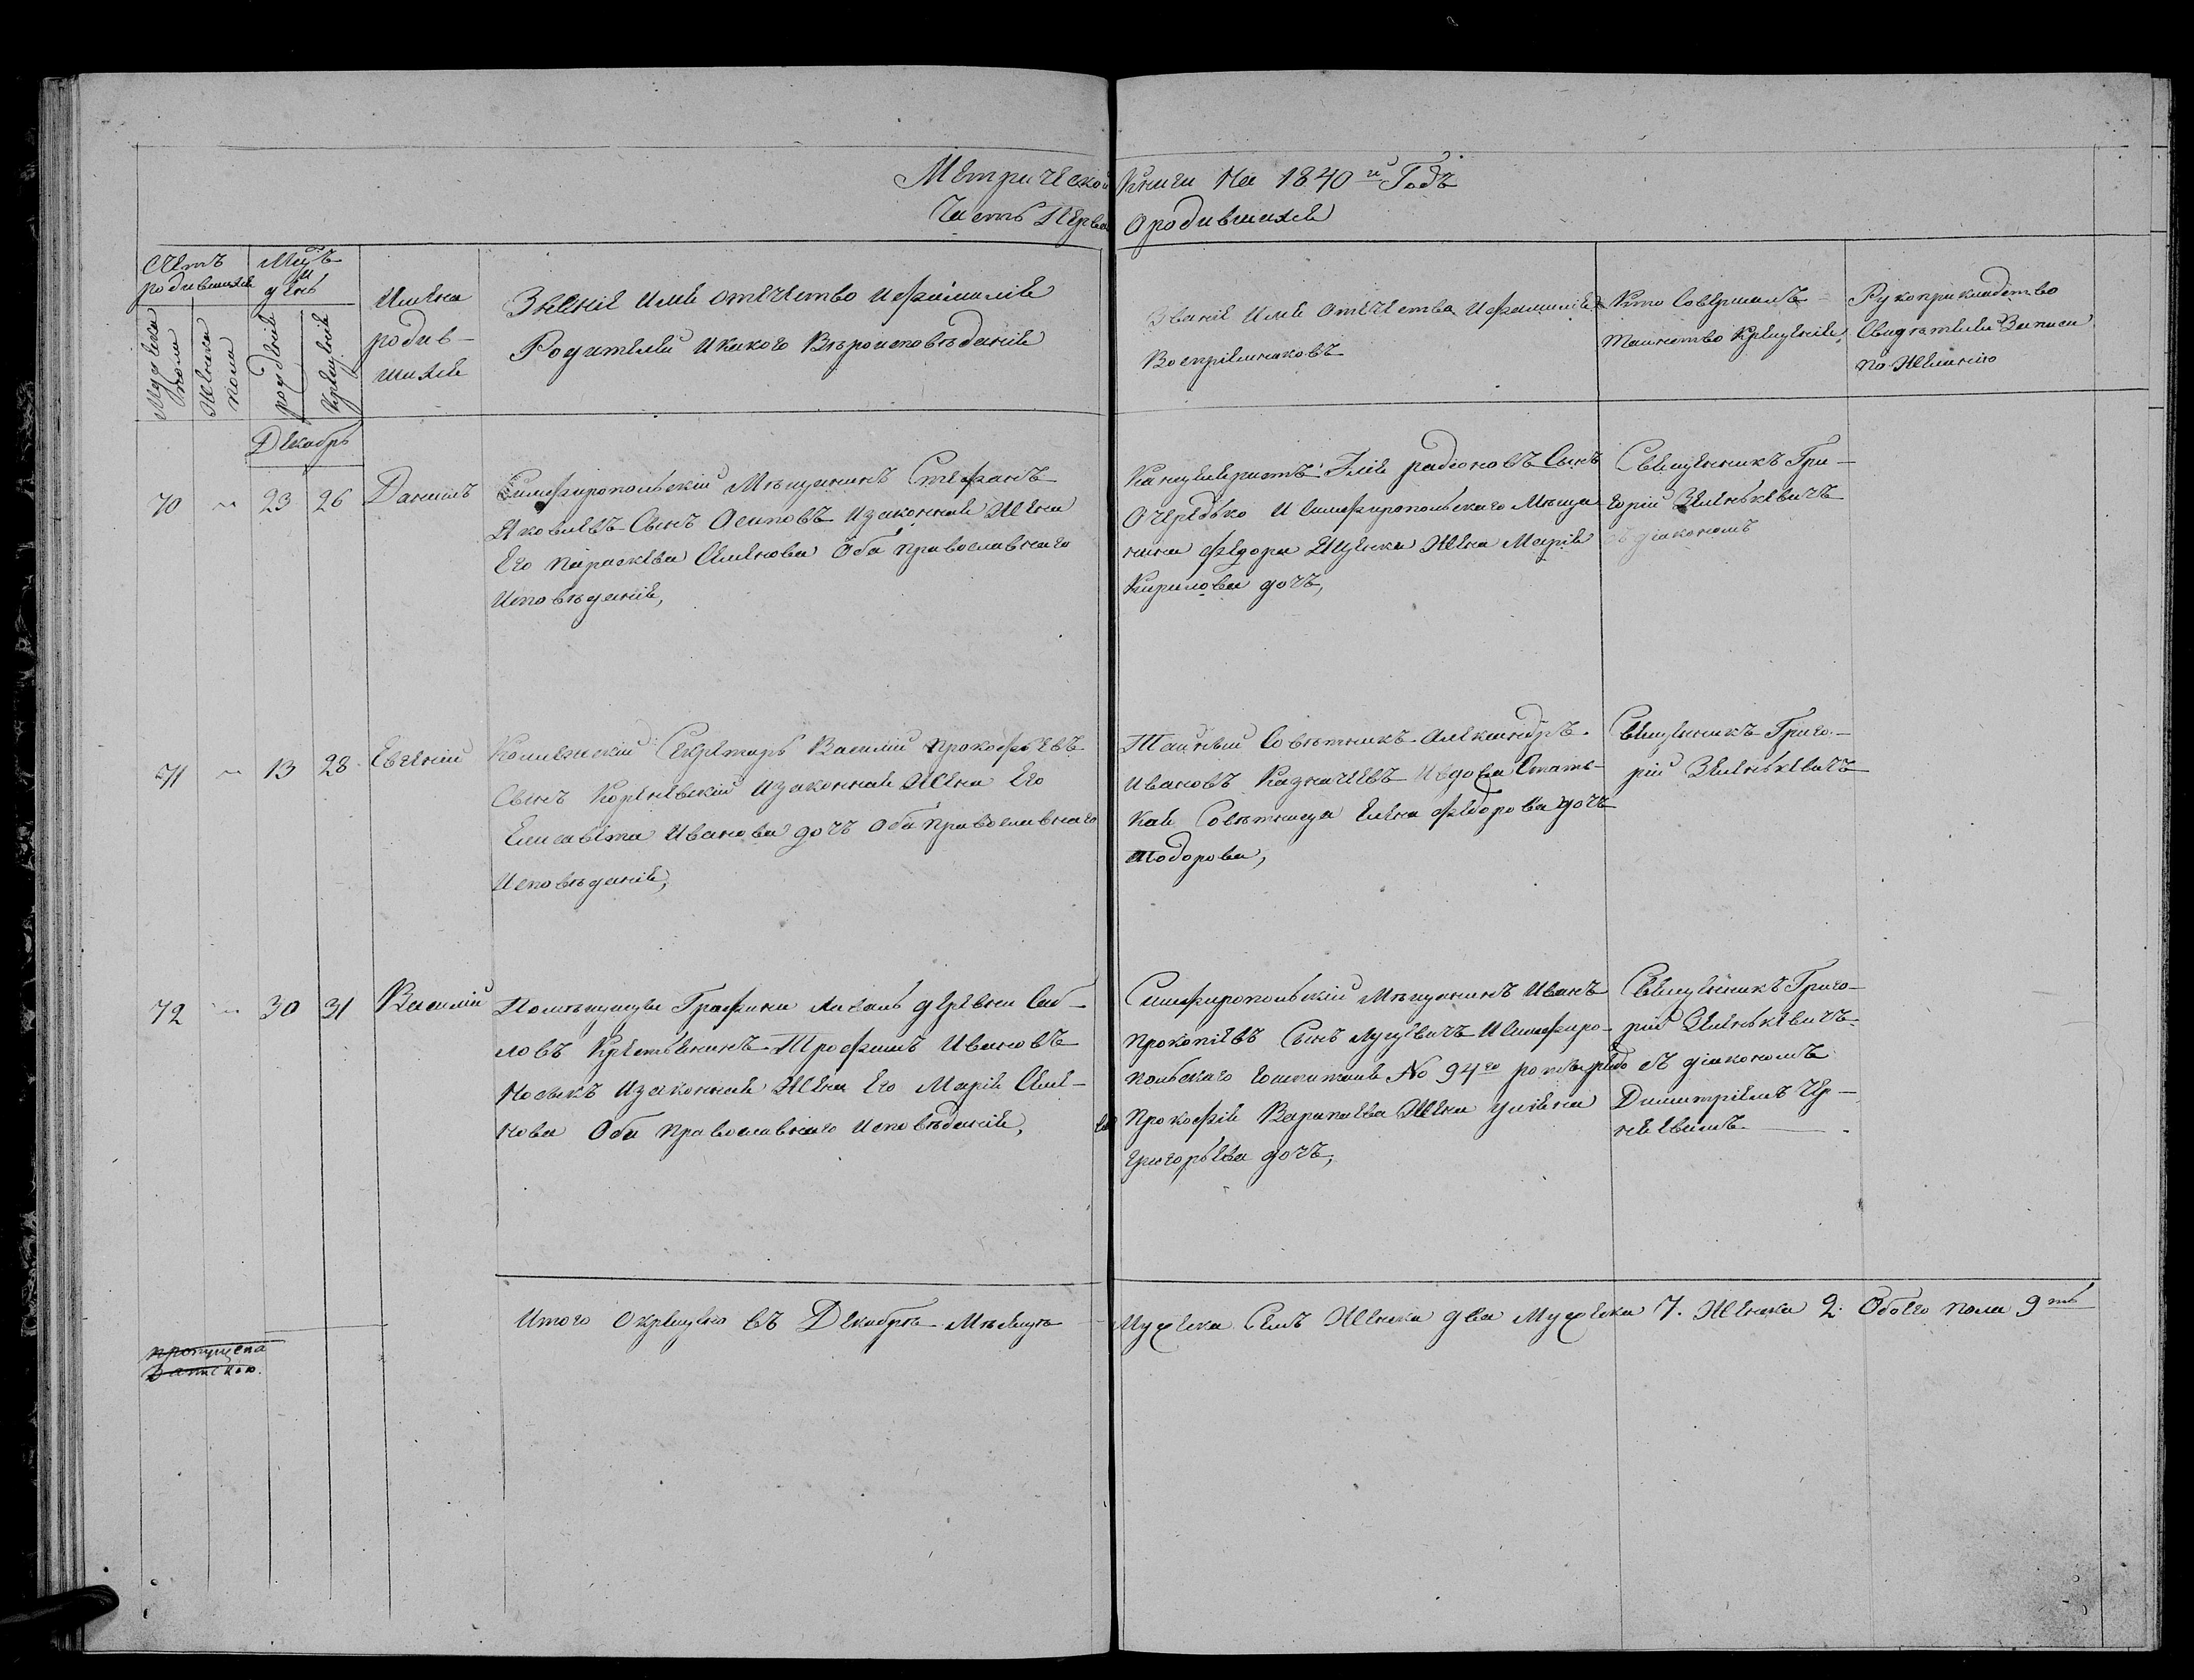 Метрической Книги на 1840й Годъ
Часть Первая О родившихся
Счетъ родившихся
Мужеска пола
Женска пола
Мцъ и день
рожденія
крещенія
Имена родив-
шихся
Званіе Имя отечество и фамилія
Родителей и какого Вѣроисповѣданія
Званіе Имя отечество и фамилія
Воспріемниковъ
Кто Совершалъ
таинство крещенія,
Рукоприкладство
Свидѣтелей Записи
по Желанію
Декабрь
70 23 26 Даніилъ
Симферопольскій Мѣщанинъ Стефанъ
Яковлевъ Сынъ Осиповъ и законная Жена
Его параскева Семенова Оба православнаго
Исповѣданія,
Канцеляристъ Илія радіоновъ Сынъ
Очередько И симферопольскаго Мѣща-
нина федора Яценка Жена Марія
Кирилова дочь,
Священникъ Гри-
горій Зеленькевичъ
съ діакономъ
71 13 28 Евгеній
Колежскій Секретарь Василій прокофьевъ
Сынъ Кореневскій и законная Жена Его
Елисавета Иванова дочь оба православнаго
Исповѣданія,
Тайный Совѣтникъ Александръ
Ивановъ Казначеевъ И вдова Статс-
кая Совѣтница Елена федорова дочь
тодорова,
Священникъ Григо-
рій Зеленькевичъ
72 30 31 Василій
Помѣщицы Графини Лаваль деревни Саб-
ловъ Крестьянинъ Трофимъ Ивановъ
Носыкъ и законная Жена Его Марія Семе-
нова Оба православнаго Исповѣданія,
Симферопольскій мѣщанинъ Иванъ
прокопіевъ Сынъ луцевичъ И симферо-
польскаго гошпиталя № 94го
прокофія Варапаева Жена уліяна
григорьева дочь,
Священникъ Григо-
рій Зеленькевичъ
съ діакономъ
Димитріемъ Чер-
нявскимъ
Итого Окрещено въ Декабрѣ Мѣсяцѣ Мужеска Семь Женска два Мужеска 7. Женска 2. Обоего пола 9ть
пропущена
Запискою.